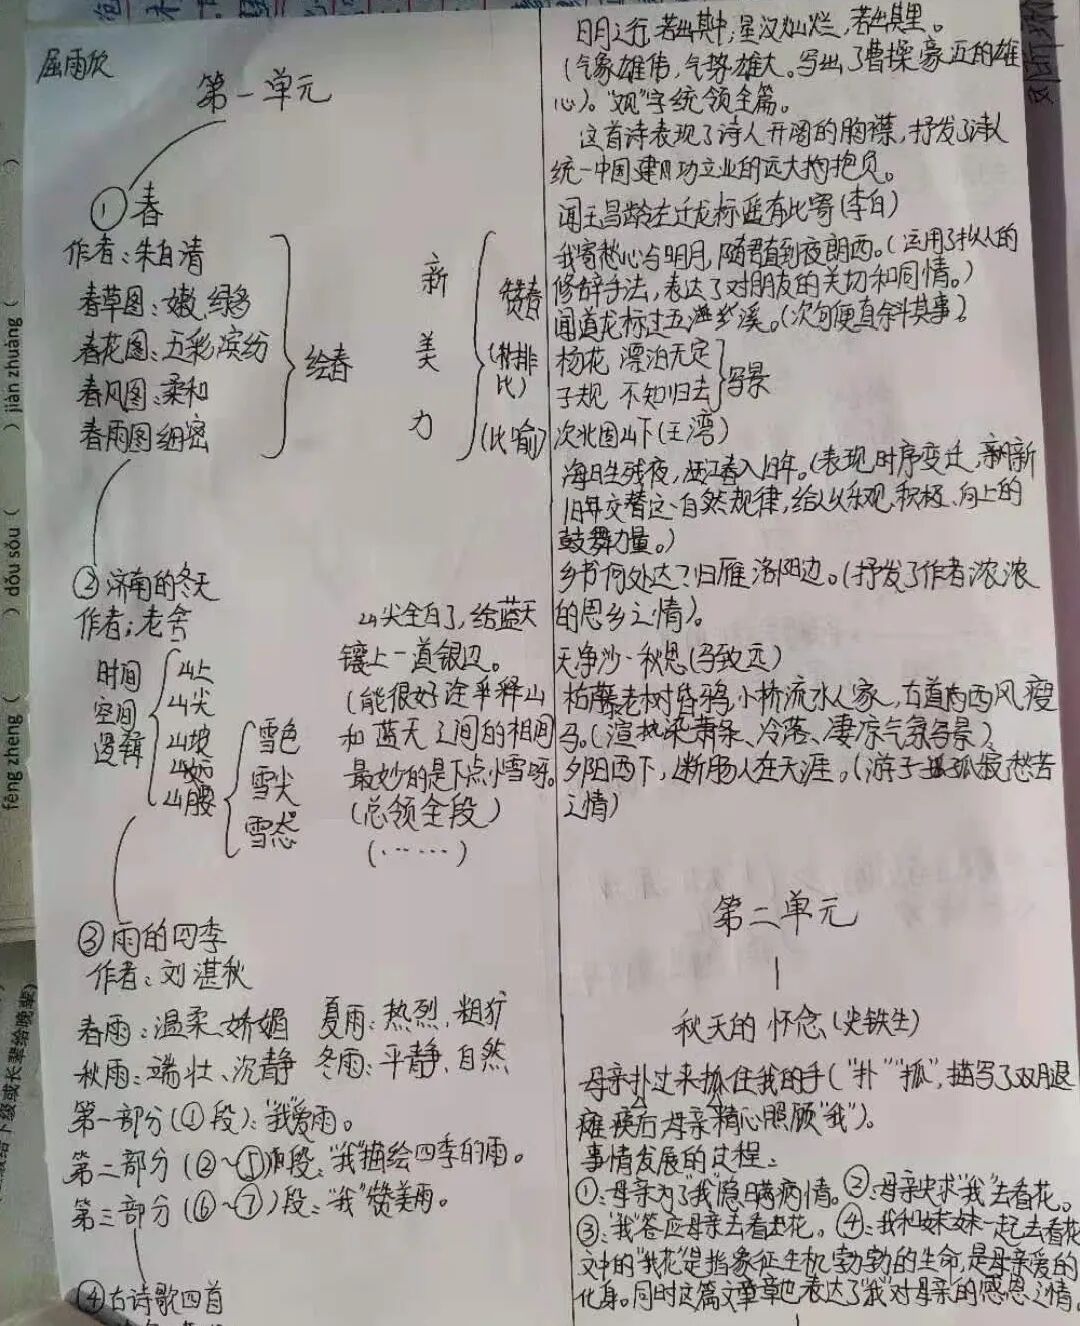 屈雨欣
第一单元
①春
作者：朱自清
春草图：嫩、绿、多
春花图：五彩缤纷
春风图：柔和
春雨图：细密
绘春
新
美
力
赞春
(排比)
(比喻)
②济南的冬天
作者：老舍
时间
空间
逻辑
山上
山尖
山坡
山腰
雪色
雪尖
雪态
山尖全白了，给蓝天
镶上一道银边。
(能很好诠释山
和蓝天之间的相间
最妙的是下点小雪呀。
(总领全段)
(……)
③雨的四季
作者：刘湛秋
春雨：温柔、娇媚 夏雨：热烈、粗犷
秋雨：端壮、沉静 冬雨：平静、自然
第一部分(①段)："我"爱雨。
第二部分(②~⑤)段："我"描绘四季的雨。
第三部分(⑥~⑦)段："我"赞美雨。
④古诗歌四首
日月之行，若出其中；星汉灿烂，若出其里。
(气象雄伟，气势雄大。写出了曹操豪迈的雄
心)。"观"字统领全篇。
这首诗表现了诗人开阔的胸襟，抒发了诗人
统一中国建功立业的远大抱负。
闻王昌龄左迁龙标遥有此寄(李白)
我寄愁心与明月，随君直到夜郎西。(运用了拟人的
修辞手法，表达了对朋友的关切和同情。)
闻道龙标过五溪。(次句便直叙其事)。
杨花 漂泊无定
子规 不知归去
写景
次北固山下(王湾)
海日生残夜，江春入旧年。(表现时序变迁，新
旧年交替这一自然规律，给人以乐观、积极、向上的
鼓舞力量。)
乡书何处达？归雁洛阳边。(抒发了作者浓浓
的思乡之情)。
天净沙·秋思(马致远)
枯藤老树昏鸦，小桥流水人家，古道西风瘦
马。(渲染萧条、冷落、凄凉气氛写景)
夕阳西下，断肠人在天涯。(游子孤寂愁苦
之情)
第二单元
秋天的怀念(史铁生)
母亲扑过来抓住我的手("扑""抓"，描写了双腿
瘫痪后母亲精心照顾"我")。
事情发展的过程：
①：母亲为了"我"隐瞒病情。②：母亲央求"我"去看花。
③："我"答应母亲去看花。④：我和妹妹一起去看花
文中的"花"是指象征生机勃勃的生命，是母亲爱的
化身。同时这篇文章也表达了"我"对母亲的感恩之情。
fěng zhèng (
) dǒu sǒu (
) jiàn zhuàng (